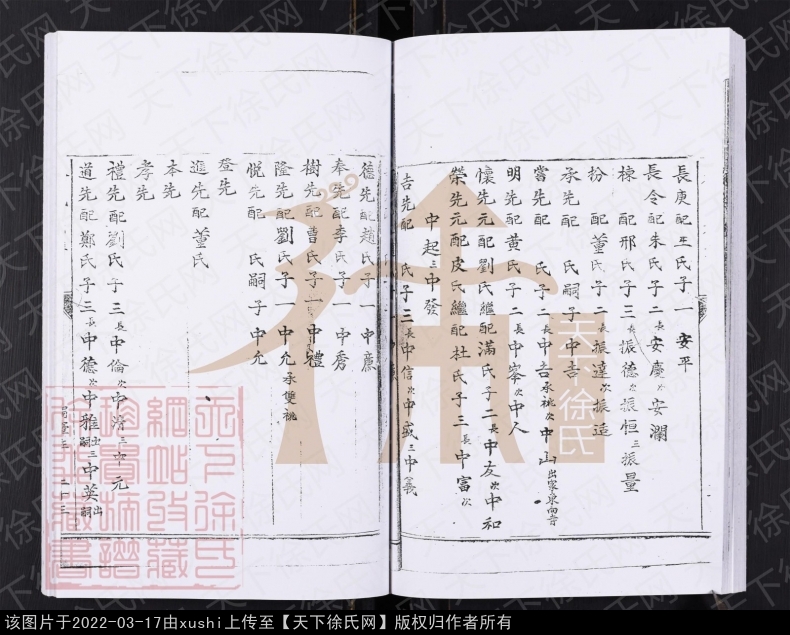 長庚配王氏子一 安平
長令配朱氏子二長安慶次安瀾
棟 配邢氏子三長振德次振恒三振量
扮 配董氏子二長振達次振造
承先配 氏嗣子中吉
嘗先配 氏子二長中吉承祧次中山出家東向寺
明先配黄氏子二長中寧次中人
懷先元配劉氏繼配滿氏子二長中友次中和
榮先元配皮氏繼配杜氏子三長中富次
中起三中發
吉先配 氏子三長中信次中盛三中義
德先配趙氏子一 中慶
奉先配李氏子一 中秀
樹先配曹氏子一 中禮
隆先配劉氏子一 中允承雙祧
悅先配 氏嗣子中允
登先
進先配董氏
本先
孝先
禮先配劉氏子三長中倫次中淳三中元
道先配鄭氏子三長中德次中雅出嗣三中英出嗣
天下徐氏
天下徐氏网
该图片于2022-03-17由xushi上传至【天下徐氏网】版权归作者所有